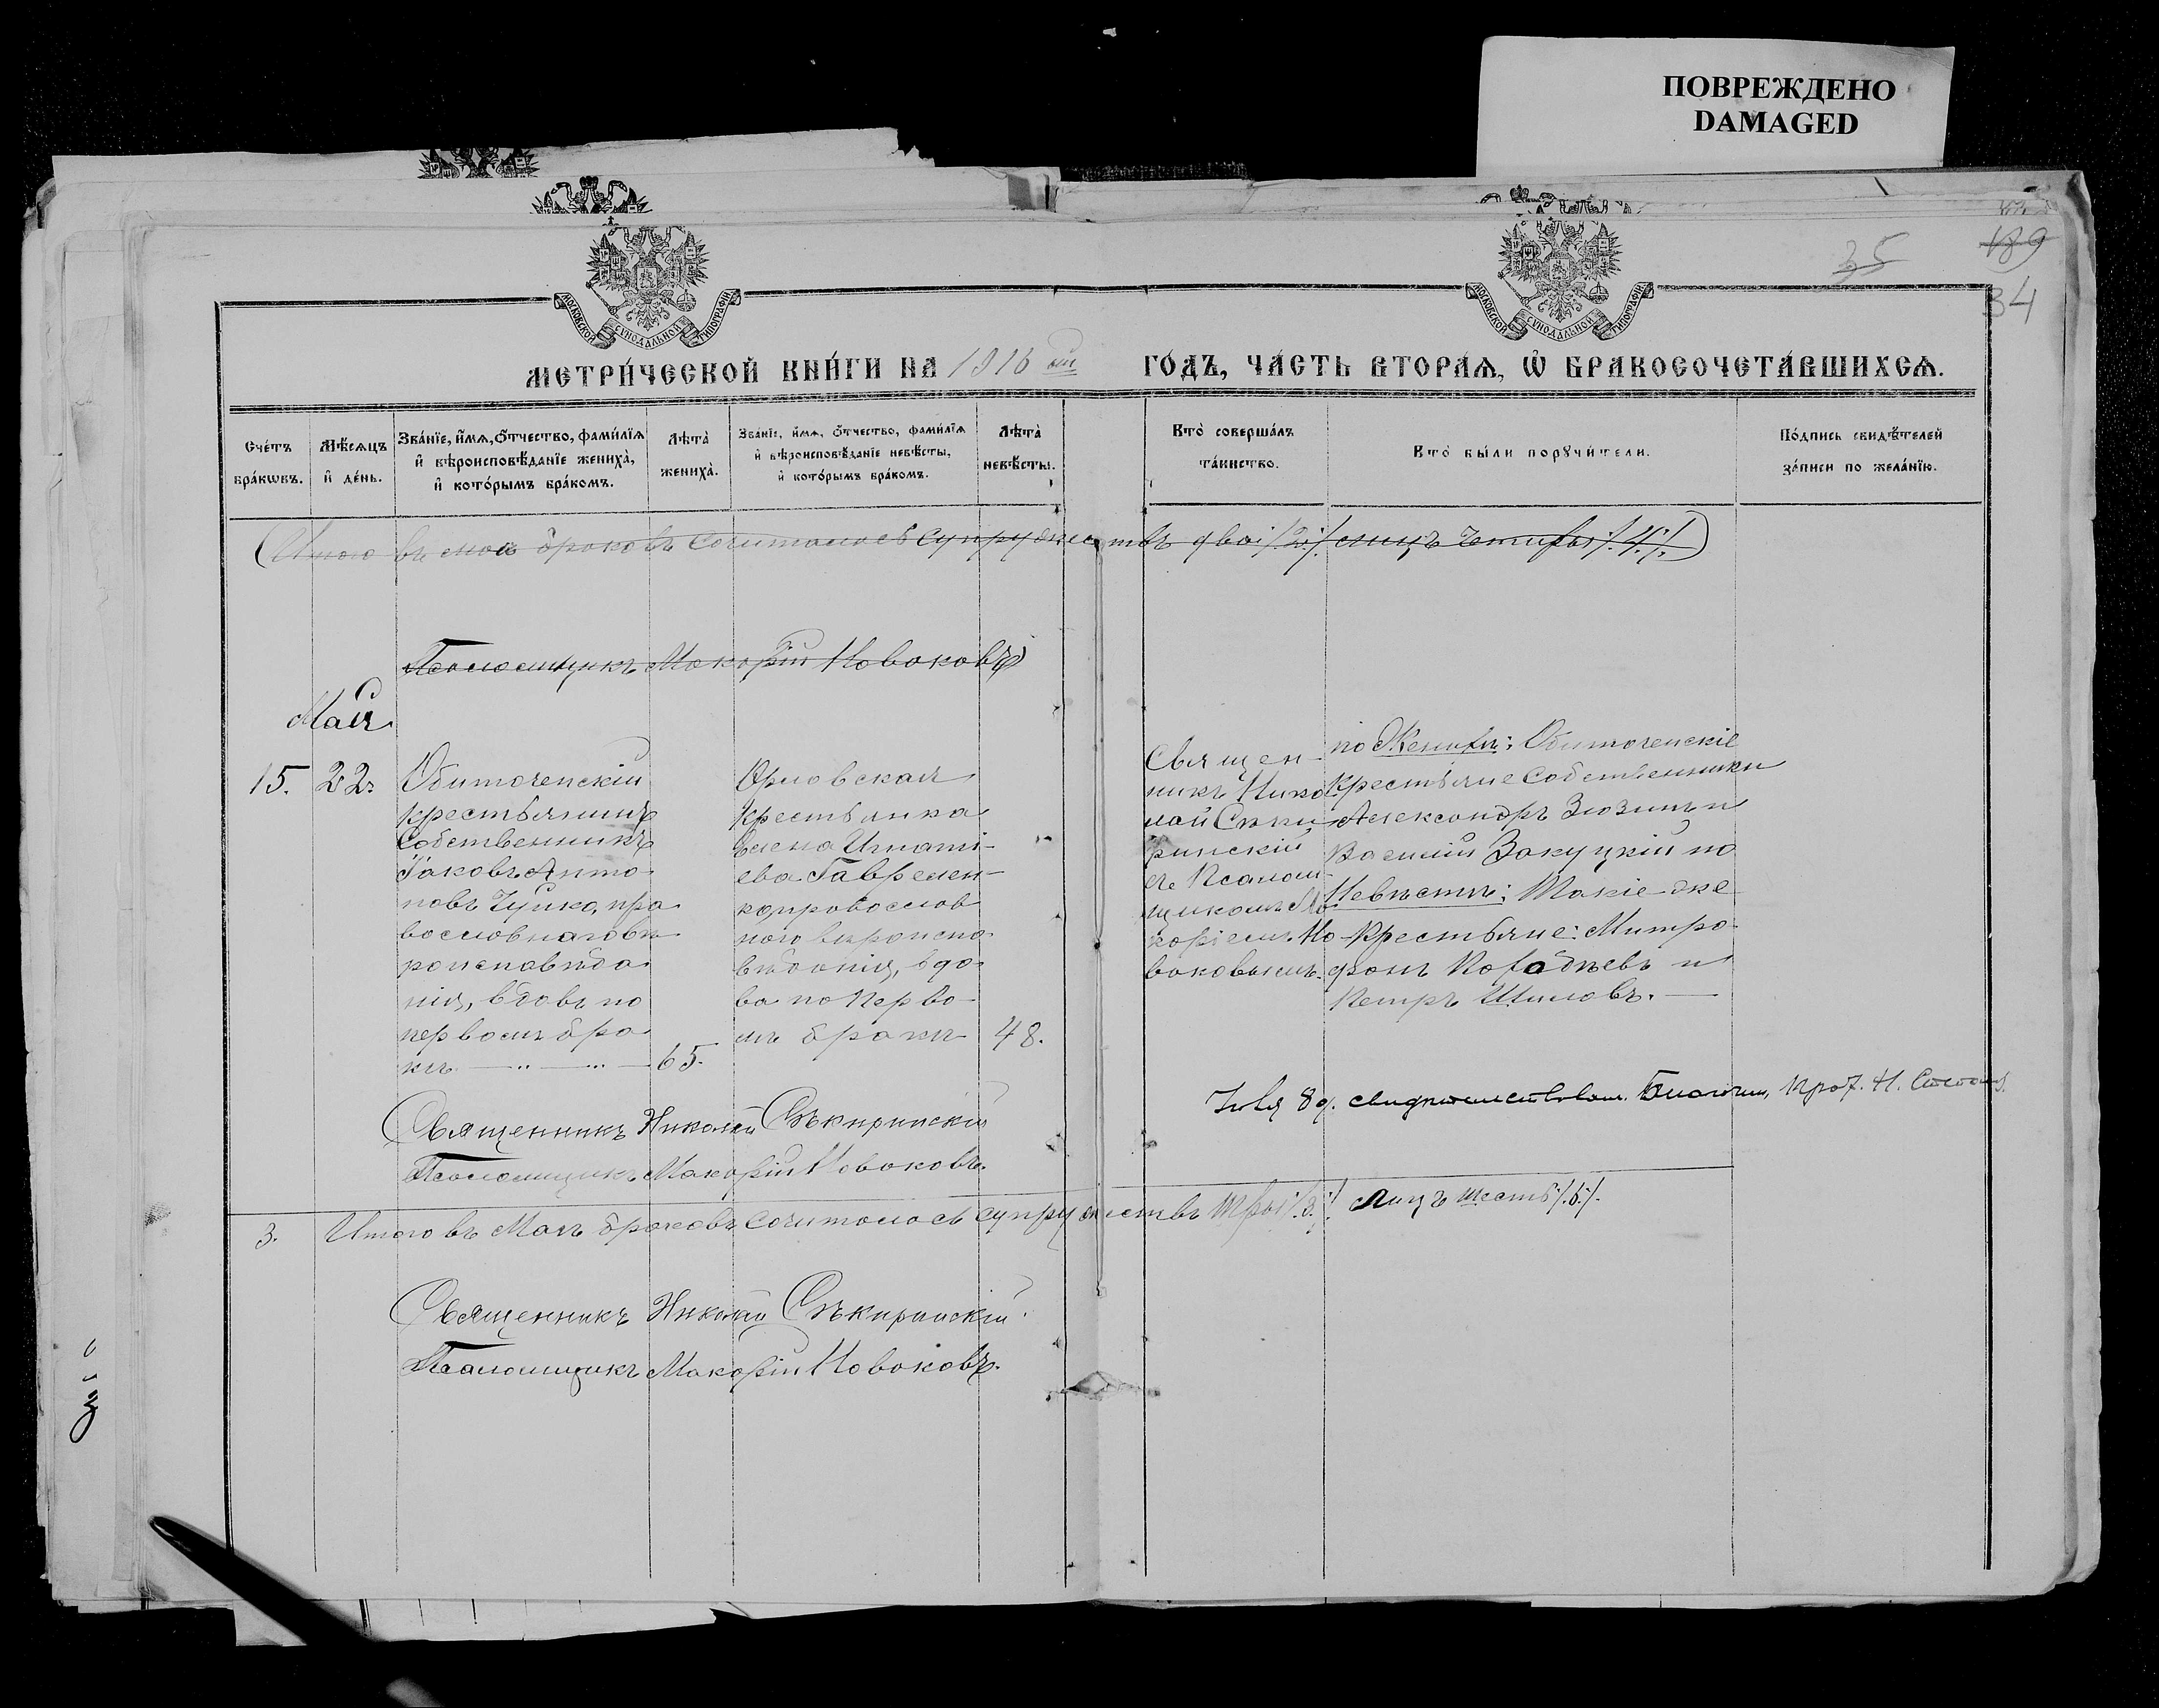 ПОВРЕЖДЕНО
DAMAGED
35
189
34
МОСКОВСКОЙ СѴНОДАЛЬНОЙ ТИПОГРАФІИ
МОСКОВСКОЙ СѴНОДАЛЬНОЙ ТИПОГРАФІИ
МЕТРИ́ЧЕСКОЙ КНИ́ГИ НА 1916 ый ГО́ДЪ, ЧА́СТЬ ВТОРА́Ѧ, Ѡ БРАКОСОЧЕТА́ВШИХСѦ.
Сче́тъ
бра́кѡвъ.
Мѣ́сѧцъ
и҆ де́нь.
Зва́нїе, и҆́мѧ, ѻ҆́тчество, фами́лїѧ
и҆ вѣроисповѣ́данїе жениха̀,
и҆ кото́рымъ бра́комъ.
Лѣта̀
жениха̀.
Зва́нїе, и҆́мѧ, ѻ҆́тчество, фами́лїѧ
и҆ вѣроисповѣ́данїе невѣ́сты,
и҆ кото́рымъ бра́комъ.
Лѣта̀
невѣ́сты.
Кто̀ соверша́лъ
та́инство.
Кто̀ бы́ли порꙋчи́тели.
По́дпись свидѣ́телей
за́писи по жела́нїю.
(Итого въ маѣ браковъ сочиталось супружествъ два /2/ лицъ четыры /4/)
Псаломщикъ Макарій Новаковъ
Май
15.
22.
Обиточенскій
крестьянинъ
Собственникъ
Іаковъ Анто-
новъ Чуйко, пра
вославнаго вѣ
роисповѣда
нія, вдовъ по
первомъ бра
кѣ
65.
Орловская
крестьянка
Елена Игнаті-
ева Гаврилен-
ко, правослов
наго вѣроиспо-
вѣданія, вдо-
ва по перво-
мъ бракѣ
48.
Священ-
никъ Нико-
лай Сѣки-
ринскій
съ Псалом-
щикомъ Ма
каріемъ Но
ваковымъ.
по Женихѣ: Обиточенскіе
крестьяне Собственники
Александръ Зюзинъ и
Василій Закуцкій по
Невѣстѣ: Такіе-же
Крестьяне: Митро-
фанъ и
Петръ Шиловъ.
Священникъ Николай Сѣкиринскій
Псаломщикъ Макарій Новаковъ.
Іюля 8 д. свидѣтельствовалъ Благочин, Прот. Н.
3. Итого въ Маѣ браковъ сочиталось супружествъ три /3/ лицъ шесть /6/.
Священникъ Николай Сѣкиринскій
Псаломщикъ Макарій Новаковъ.